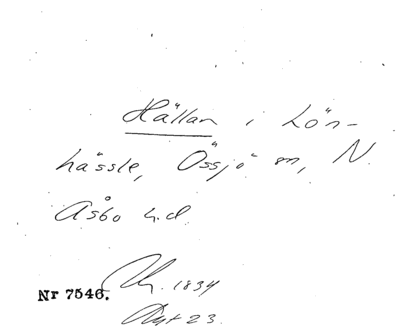 Hällan i Lön-
hässle, Össjö sn, N.
Åsbo hd.
Nr 7546.
1834
23.